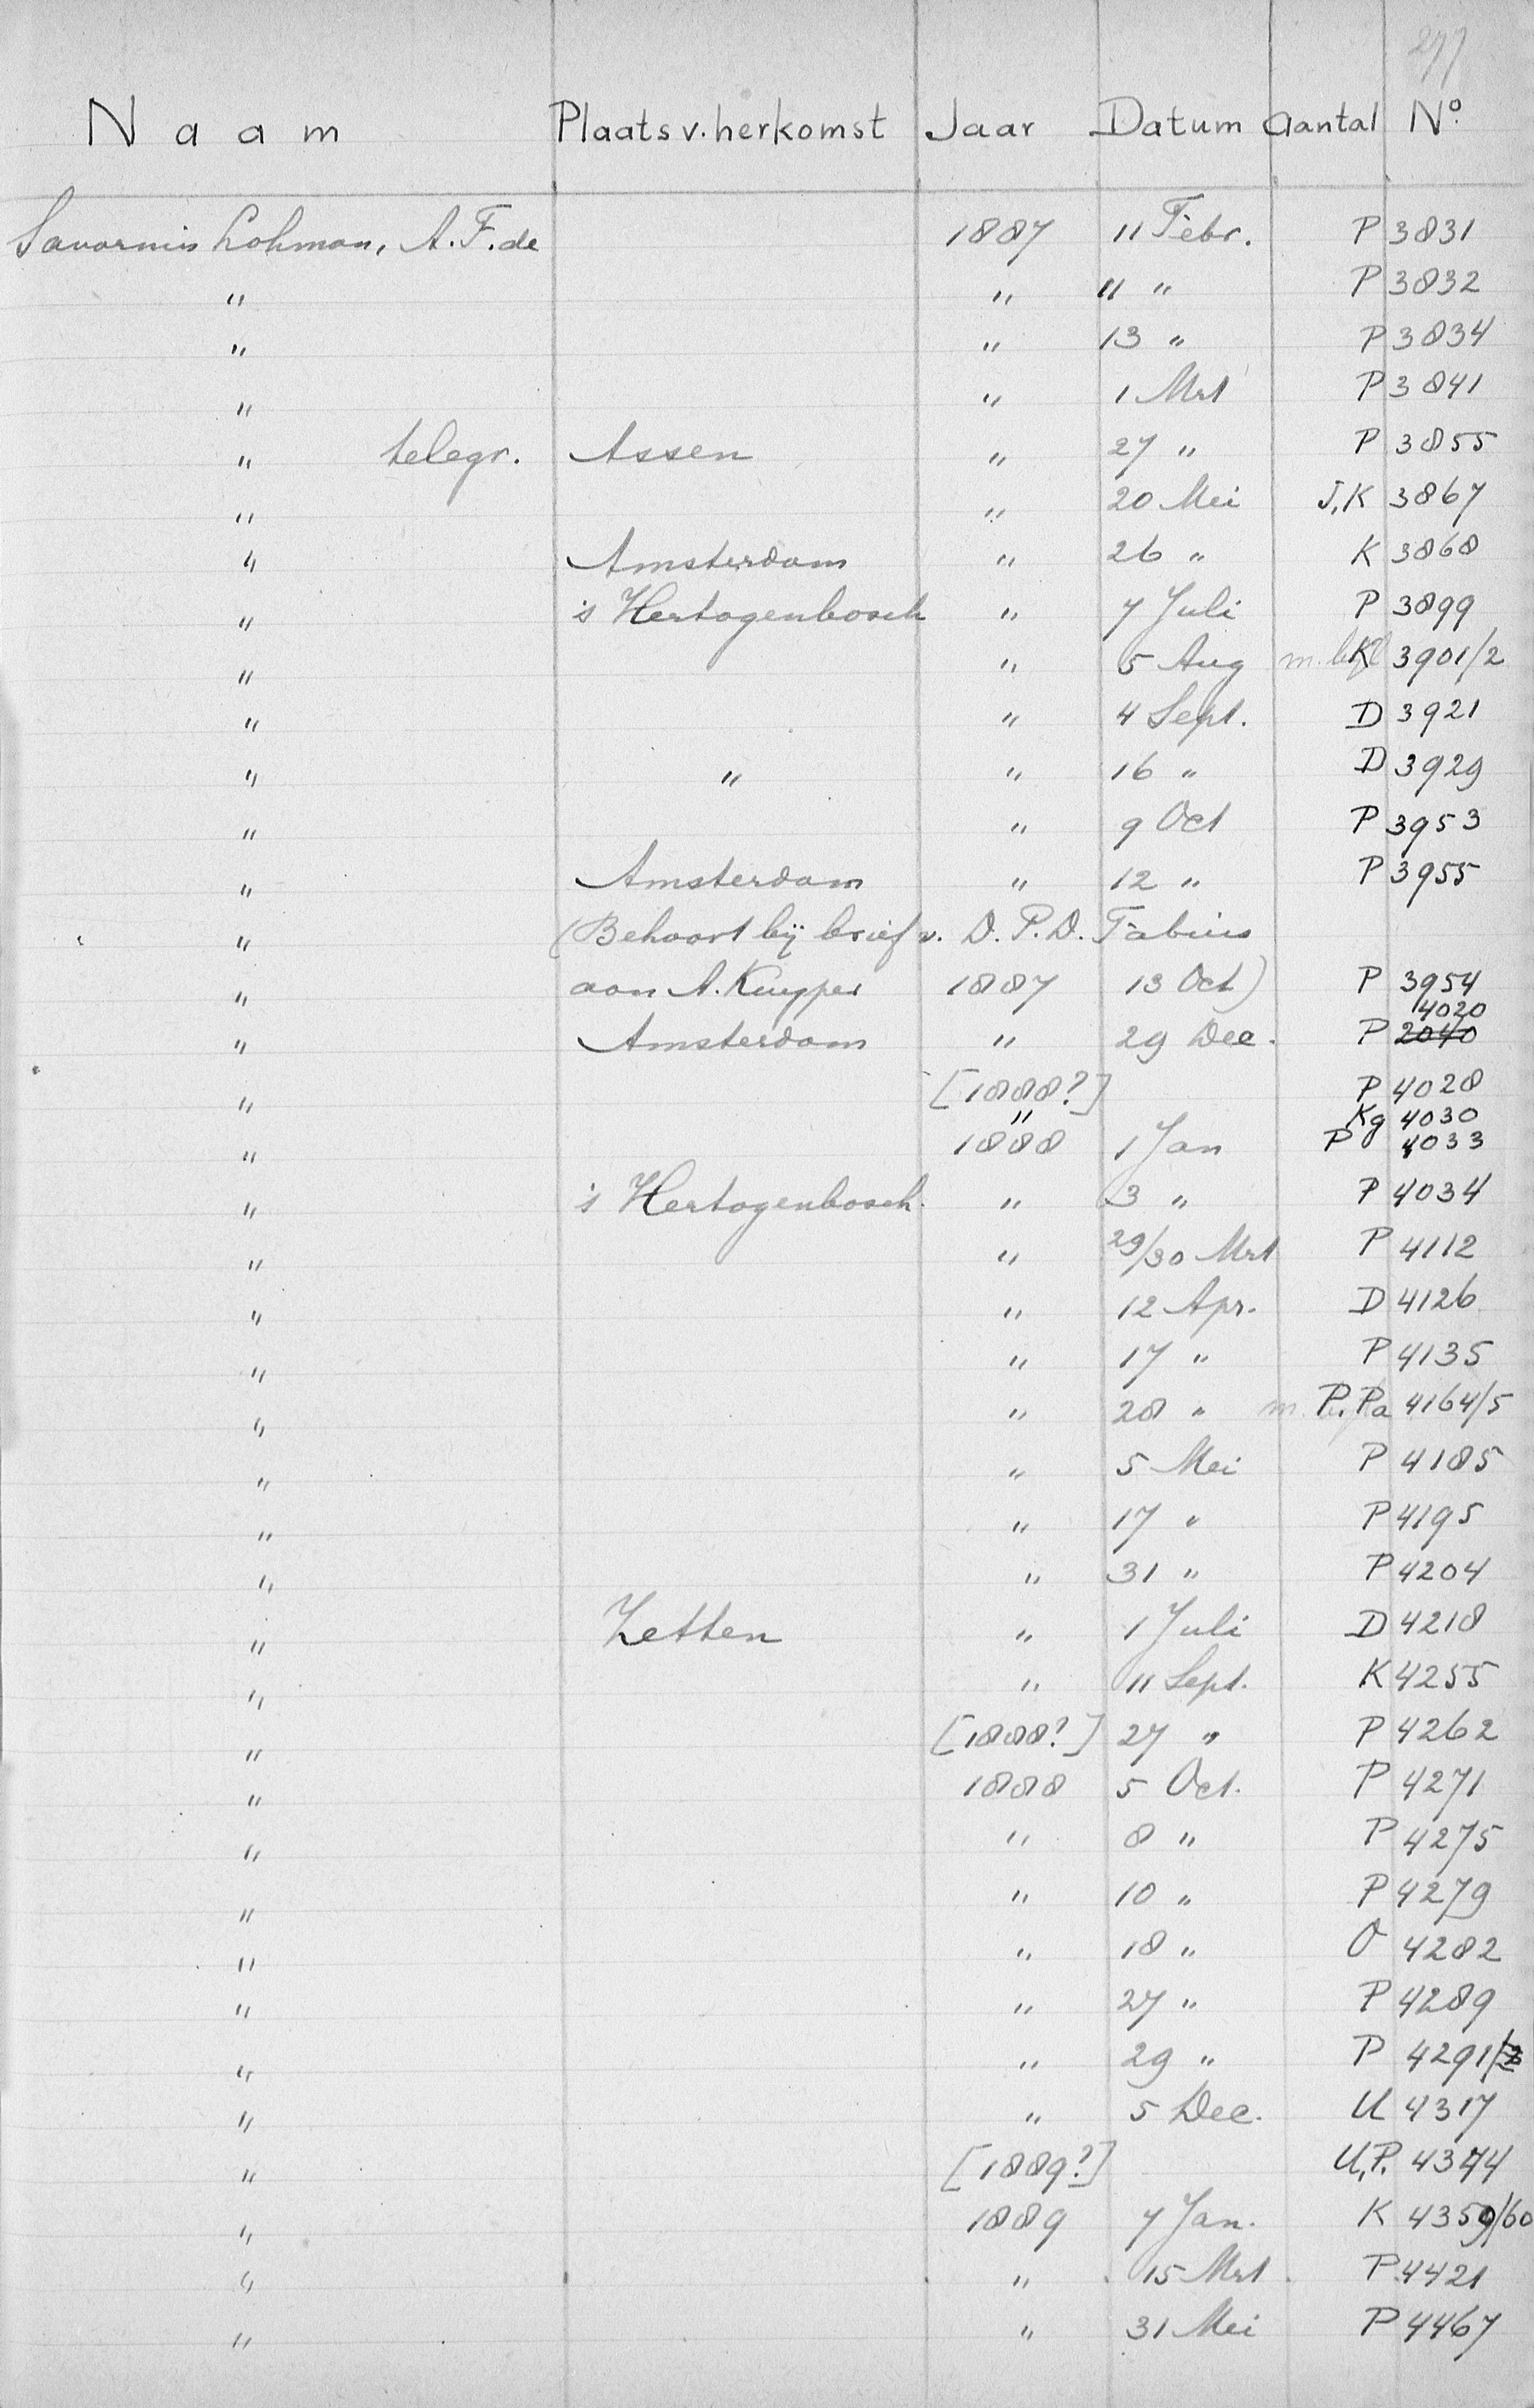 277
Naam Plaats v. herkomst Jaar Datum Aantal No.
Savornin Lohman, A.F. de 1887 11 Febr. P 3831
" " 11 " P 3832
" " 13 " P 3834
" " 1 Mrt P 3841
" telegr. Assen " 27 " P 3855
" " 20 Mei J,K 3867
" Amsterdam " 26 " K 3868
" 's Hertogenbosch " 7 Juli P 3899
" " 5 Aug m. K 3901/2
" " 4 Sept. D 3921
" " " 16 " D 3929
" " 9 Oct P 3953
" Amsterdam " 12 " P 3955
" (Behoort bij brief v. D.P.D. Fabius
" aan A. Kuyper 1887 13 Oct) P 3954
4020
" Amsterdam " 29 Dec. P 2040
" [1888?] P 4028
" Kg 4030
" 1888 1 Jan P 4033
" 's Hertogenbosch. " 3 " P 4034
" " 29/30 Mrt P 4112
" " 12 Apr. D 4126
" " 17 " P 4135
" " 28 " m. P. Pa 4164/5
" " 5 Mei P 4185
" " 17 " P 4195
" " 31 " P 4204
" Zetten " 1 Juli D 4218
" " 11 Sept. K 4255
" [1888?] 27 " P 4262
" 1888 5 Oct. P 4271
" " 8 " P 4275
" " 10 " P 4279
" " 18 " O 4282
" " 27 " P 4289
" " 29 " P 4291
" " 5 Dec. U 4317
" [1889?] U,P. 4344
" 1889 7 Jan. K 4359/60
" " 15 Mrt P 4421
" " 31 Mei P 4467